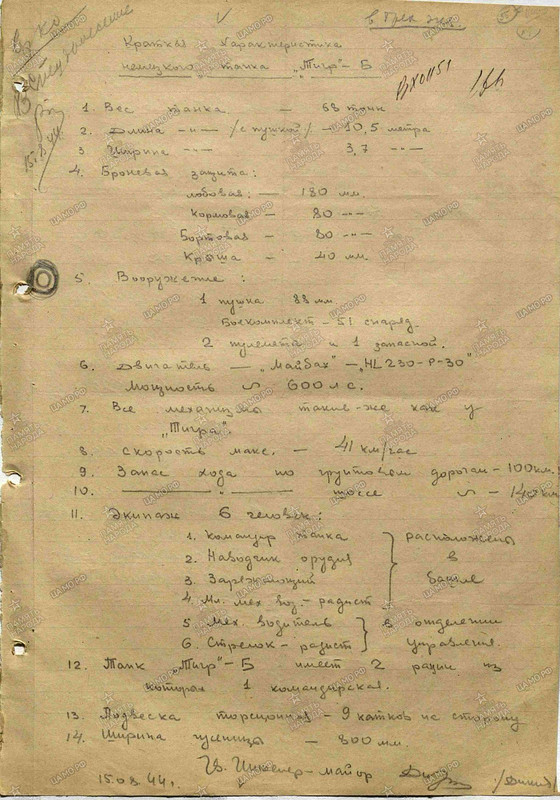 в трёх экз.
Краткая характеристика
немецкого танка „Тигр“-Б
1. Вес танка — 68 тонн
2. Длина -"- /с пушкой/ - 10,5 метра
3. Ширина -"- 3,7 -"-
4. Броневая защита:
лобовая: — 180 мм.
Кормовая — 80 -"-
Бортовая — 80 -"-
Крыша — 40 мм
5. Вооружение:
1 пушка 88 мм.
Боекомплект - 51 снаряд.
2 пулемета и 1 запасной.
6. Двигатель — „Майбах“ - „HL 230-P-30“
Мощность ~ 600 л.с.
7. Все механизмы такие-же как у
„Тигра“.
8. Скорость макс. — 41 км/час
9. Запас хода по грунтовом дорогам - 100 км.
10. — " — шоссе ~ - 140 км
11. Экипаж 6 человек:
1. Командир танка
2. Наводчик орудия
3. Заряжающий
4. Мл. мех. вод. - радист
расположены
в
башне
5. Мех. водитель
6. Стрелок - радист
в отделении
управления.
12. Танк „Тигр“-Б имеет 2 рации из
которых 1 командирская.
13. Подвеска торсионная - 9 катков на сторону
14. Ширина гусеницы - 800 мм.
Гв. Инженер-майор
15.08.44г.
ЦАМО.РФ